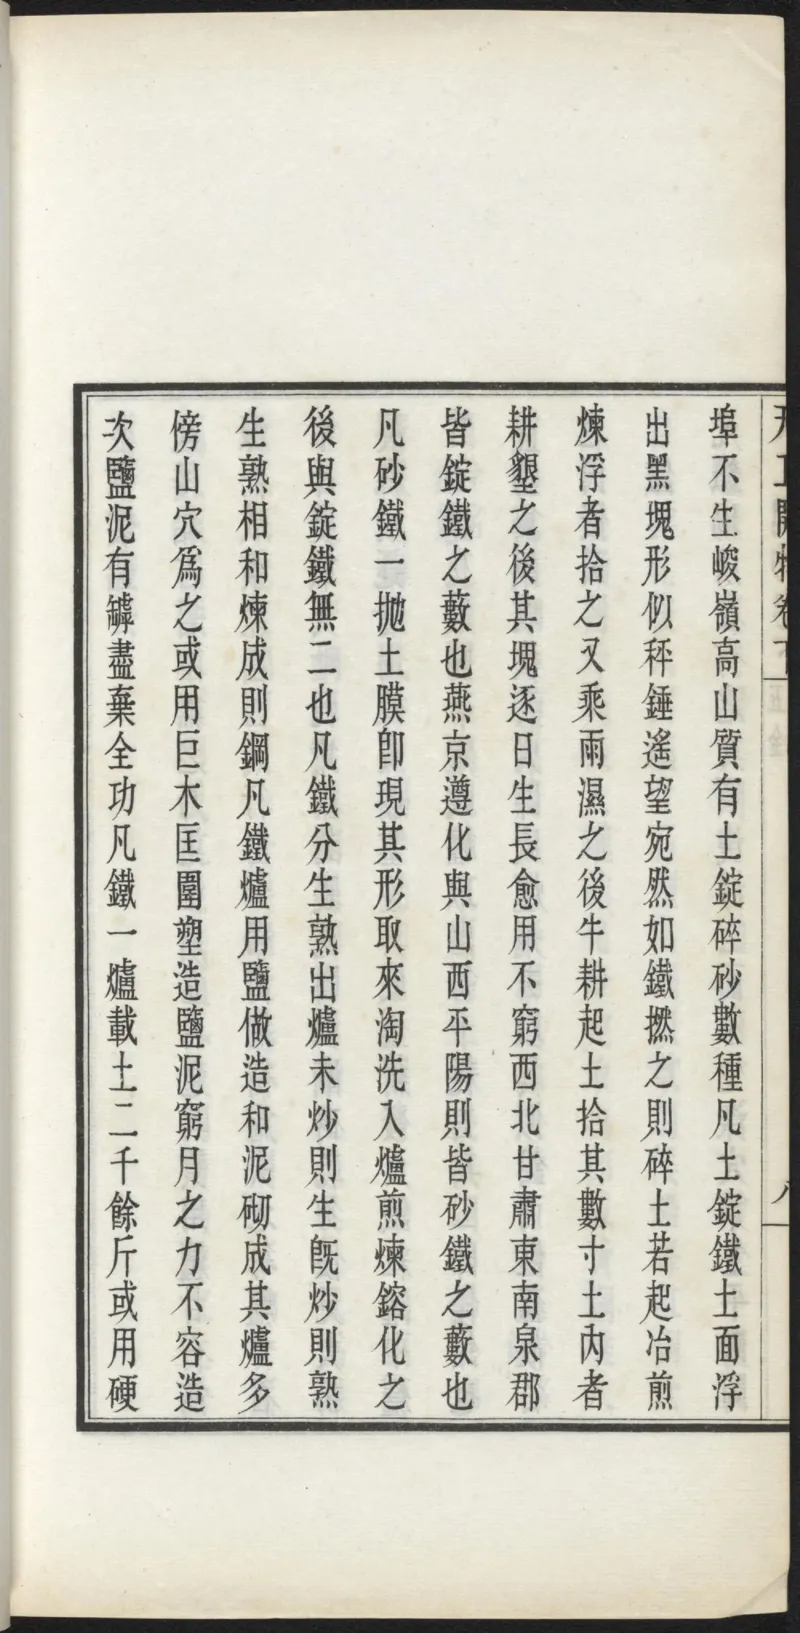 天工開物卷下
五金
八
埠不生峻嶺高山質有土錠碎砂數種凡土錠鐵土面浮
出黑塊形似秤錘遙望宛然如鐵撚之則碎土若起冶煎
煉浮者拾之又乘雨濕之後牛耕起土拾其數寸土內者
耕墾之後其塊逐日生長愈用不窮西北甘肅東南泉郡
皆錠鐵之藪也燕京遵化與山西平陽則皆砂鐵之藪也
凡砂鐵一拋土膜卽現其形取來淘洗入爐煎煉鎔化之
後與錠鐵無二也凡鐵分生熟出爐未炒則生旣炒則熟
生熟相和煉成則鋼凡鐵爐用鹽做造和泥砌成其爐多
傍山穴爲之或用巨木匡圍塑造鹽泥窮月之力不容造
次鹽泥有罅盡棄全功凡鐵一爐載土二千餘斤或用硬